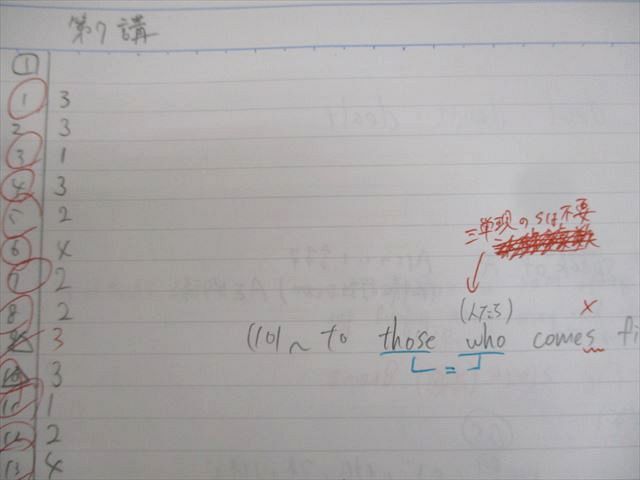 第7講
1
1 3
2 3
3 1
4 3
5 2
6 4
7 2
8 2
9 3
10 3
11 1
12 2
13 4
三単現のsは不要
(人たち)
×
(10) ~ to those who comes fi
=